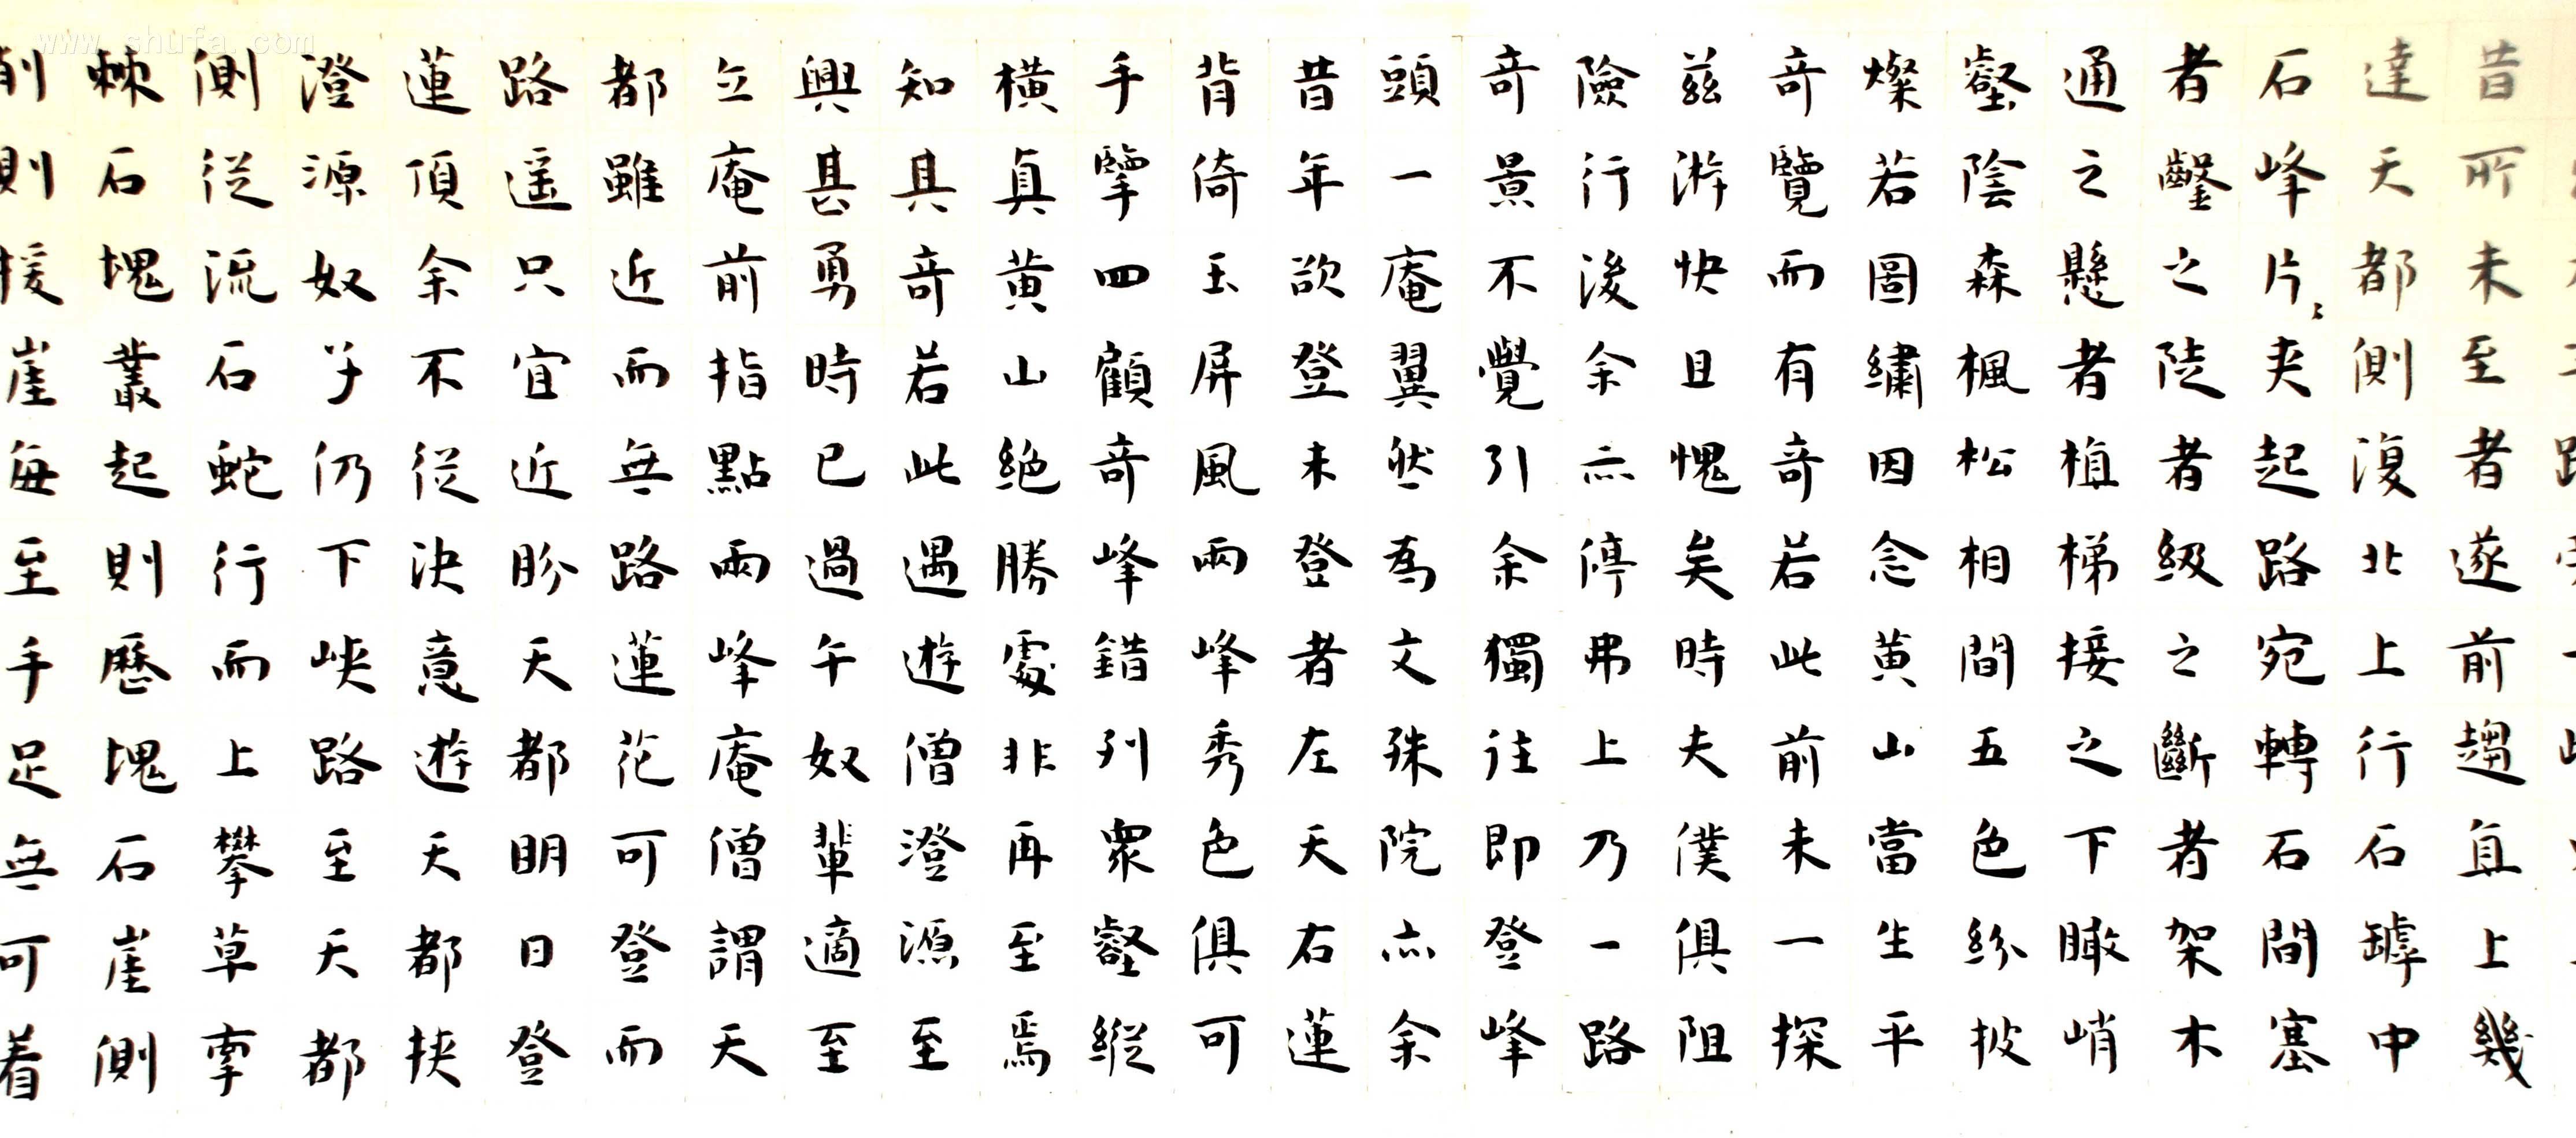 昔所未至者遂前趨直上幾
達天都側復北上行石罅中
石峰片〻夾起路宛轉石間塞
者鑿之陡者級之斷者架木
通之懸者植梯接之下瞰峭
壑陰森楓松相間五色紛披
燦若圖繡因念黃山當生平
奇覽而有奇若此前未一探
茲游快且愧矣時夫僕俱阻
險行後余亦停弗上乃一路
奇景不覺引余獨往即登峰
頭一庵翼然為文殊院亦余
昔年欲登未登者左天右蓮
背倚玉屏風兩峰秀色俱可
手擥四顧奇峰錯列眾壑縱
橫真黃山絕勝處非再至焉
知其奇若此遇遊僧澄源至
興甚勇時已過午奴輩適至
立庵前指點兩峰庵僧謂天
都雖近而無路蓮花可登而
路遙只宜近盼天都明日登
蓮頂余不從決意遊天都挾
澄源奴子仍下峽路至天都
側從流石蛇行而上攀草牽
棘石塊叢起則歷塊石崖側
削則援崖每至手足無可着
www.shufa.com